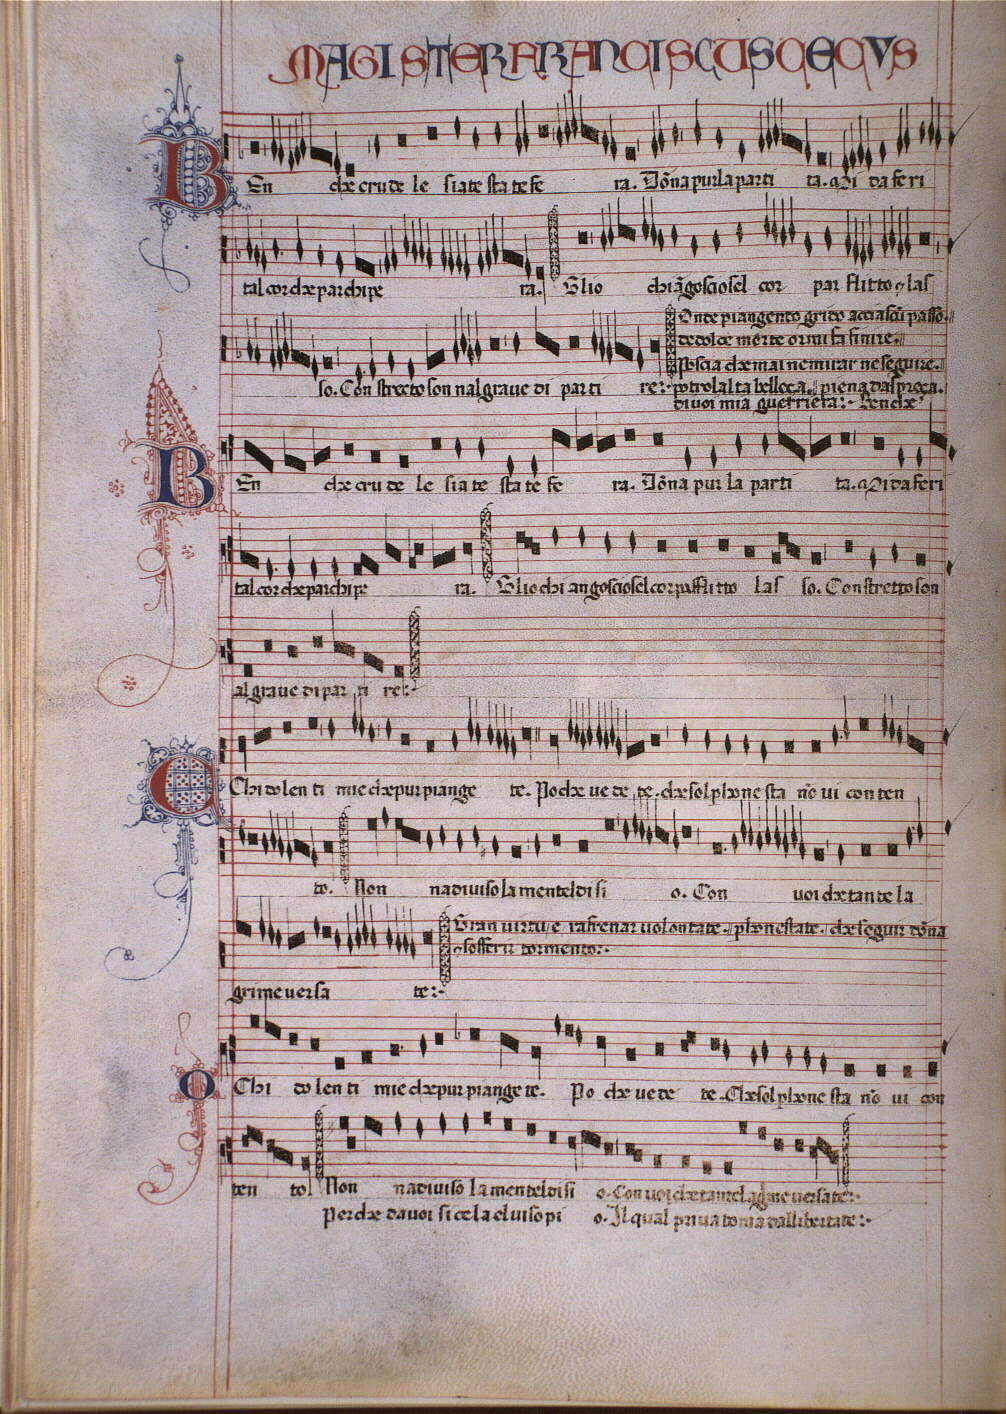 MAGISTER FRANCISCUS CECVS
BEn che cru de le sia te sta te fe ra. Dõna pur la parti ta. Mi da fe ri
tal cor che par chi pe ra. Gliо chi ãgosciosel cor par flitto las
so. Con strecto son nal graue di par ti re:
Onde piangento grido
de dolce morte
Poscia che mai ne mirar ne seguire.
po trol alta belleça. piena dasproça.
di uoi mia guerriera:- Benche
BEn che cru de le sia te sta te fe ra. Dõna pur la parti ta. Mi da feri
tal cor che par chi pe ra. Glio chi an gosciosel cor pafflitto las so. Con stretto son
al graue di par ti re:-
CChi do len ti mie che pur piange te. Po che ue de te. che sol phone sta nõ ui con ten
to. Non na diuiso la mentel di si o. Con uoi che tan te la
grime uersa te:-
Gran uirtu e rafrenar uolontate. phonestate. che seguir dõna
sofferir tormento:-
OChi do len ti mie che pur piange te. Po che ue de te. Che sol phone sta nõ ui con
ten to Non na diuiso la mentel di si o. Con uoi che tante lagrime uersate:-
Per che da uoi si cela el uiso pi o. Il qual priua